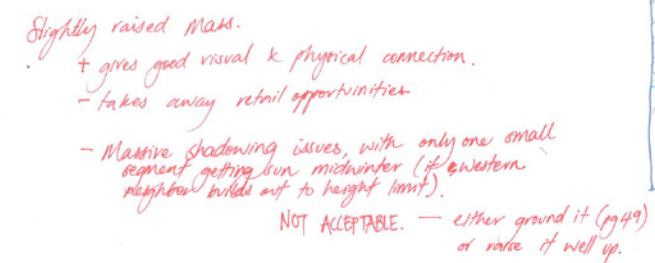 Slightly raised mass.
+ gives good visual & physical connection.
- takes away retail opportunities
- Massive shadowing issues, with only one small
segment getting sun midwinter (if western
neighbor builds out to height limit).
NOT ACCEPTABLE. — either ground it (pg 49)
or raise it well up.